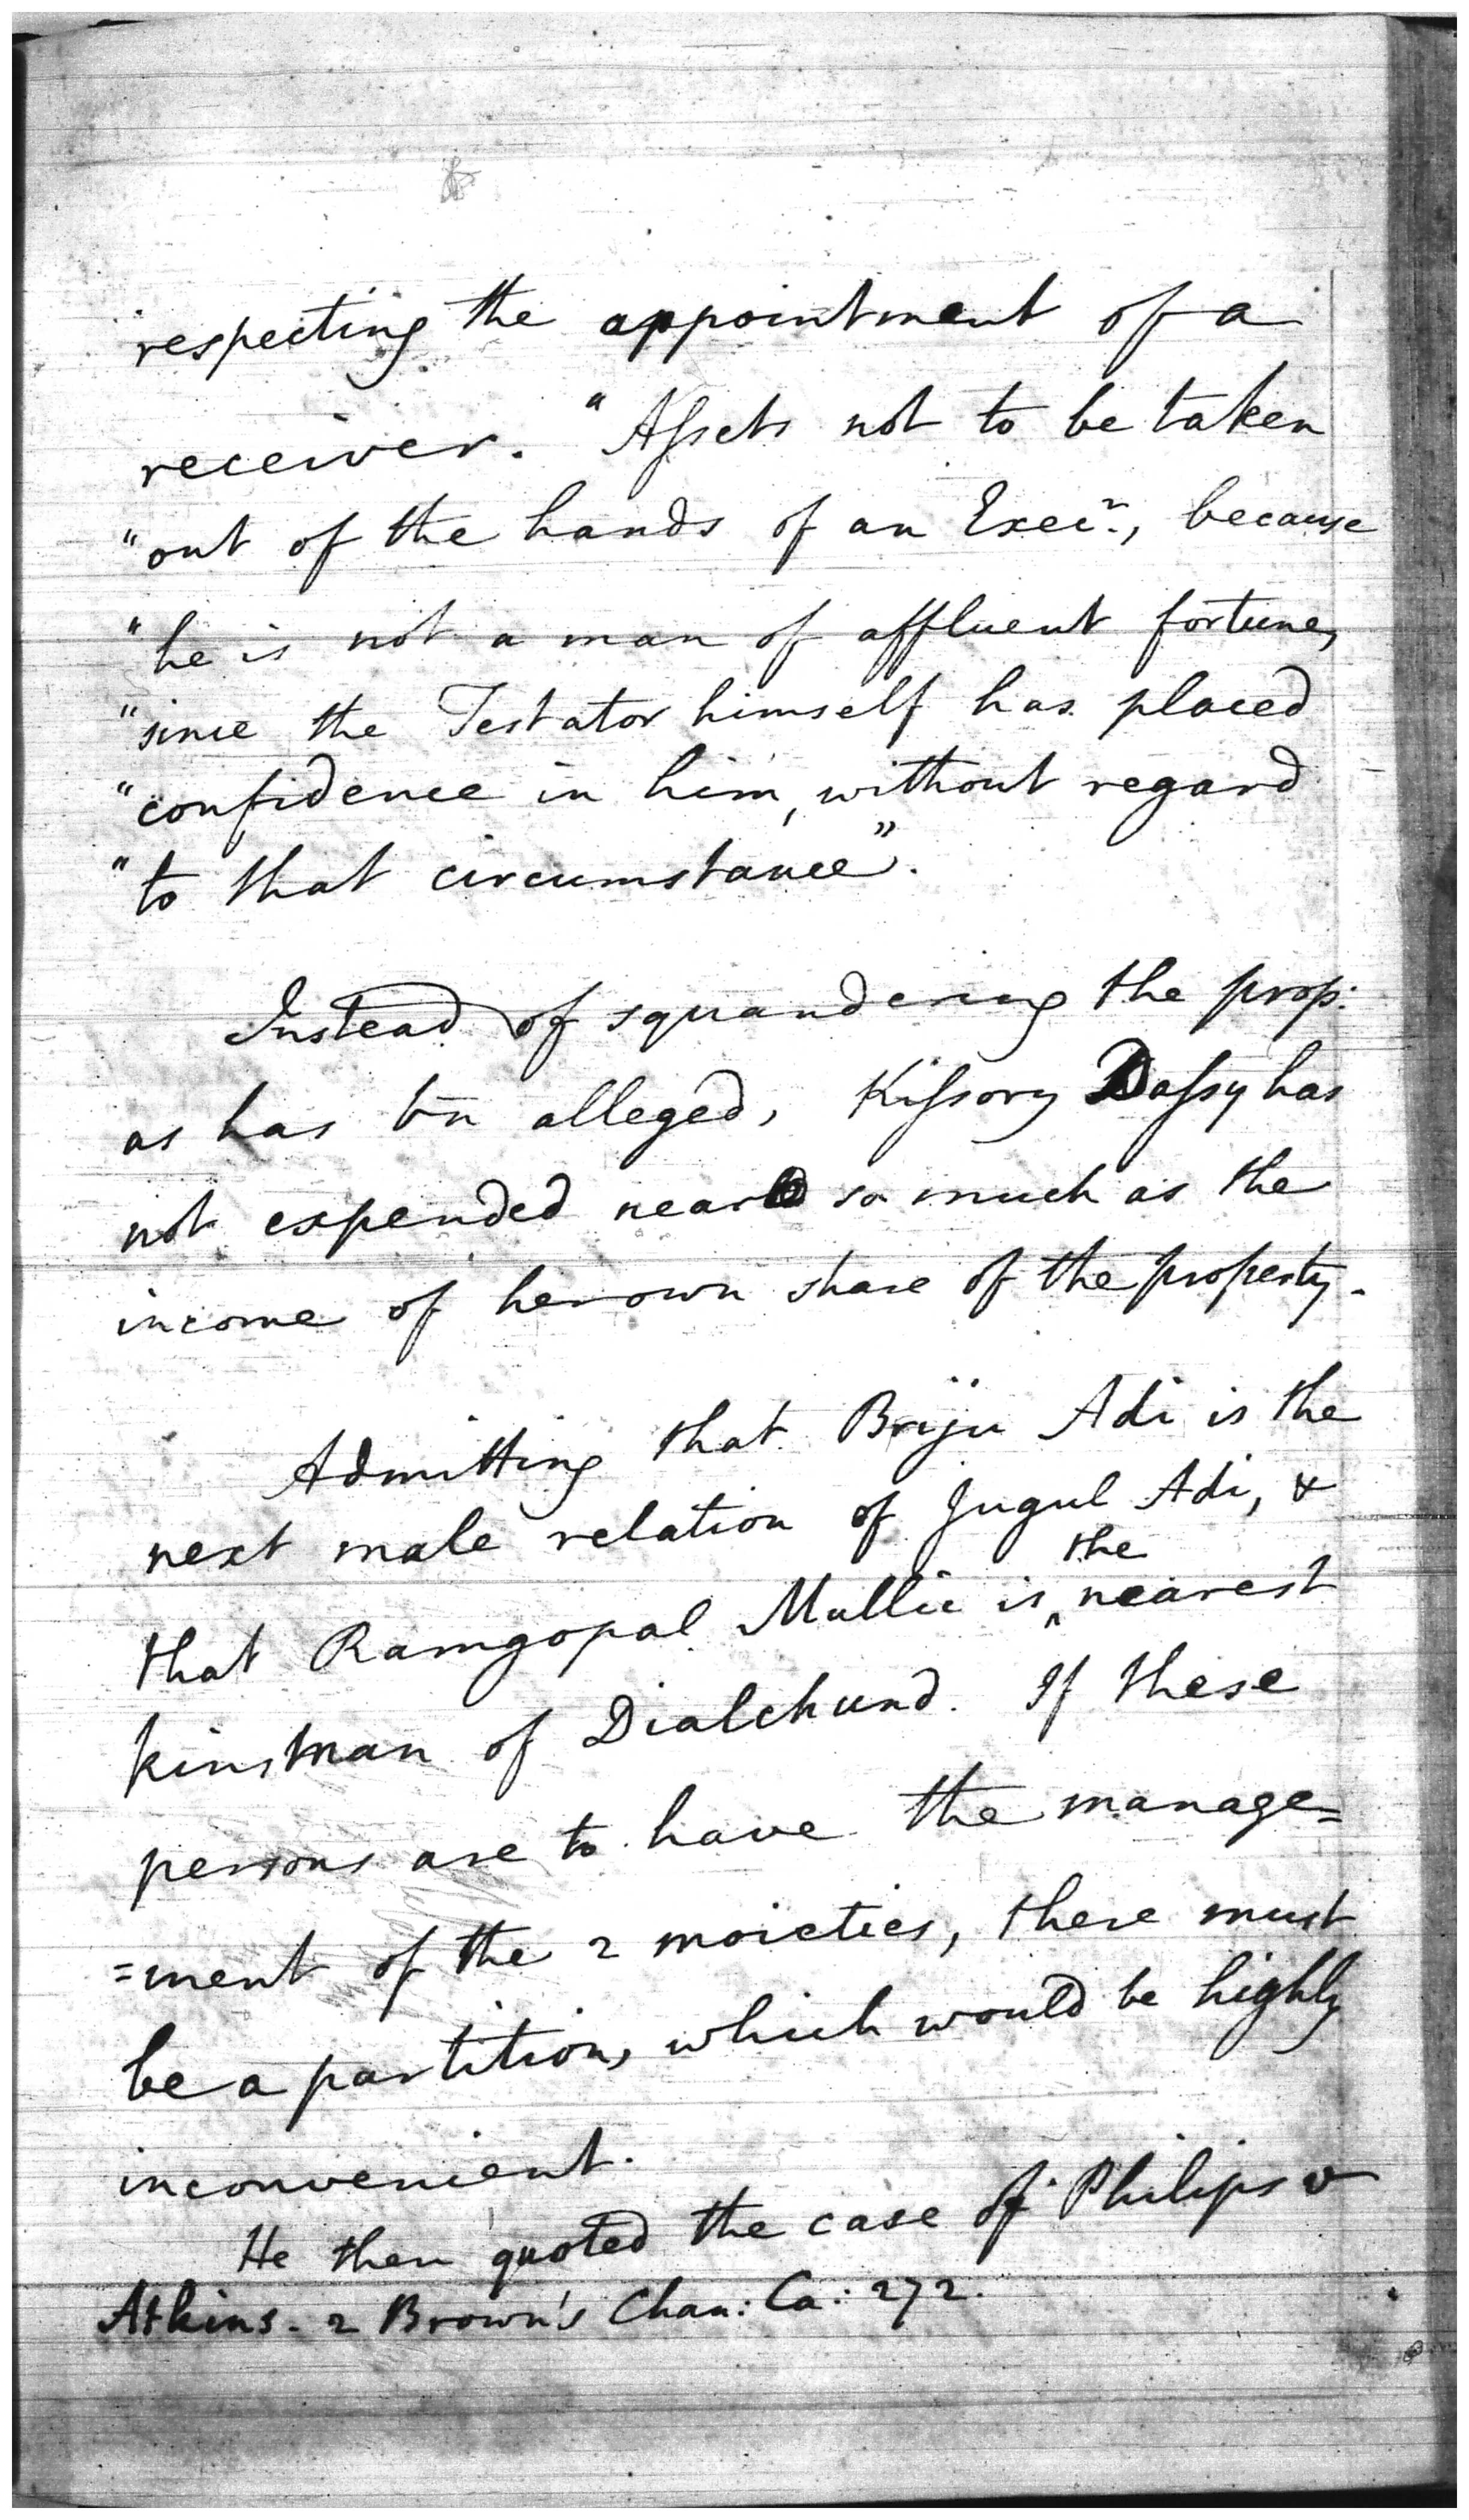 respecting the appointment of a
receiver. "Assets not to be taken
"out of the hands of an Exec.r, because
"he is not a man of affluent fortune,
"since the Testator himself has placed
"confidence in him, without regard
"to that circumstance".
Instead of squandering the prop:
as has bn alleged, Kissory Dassy has
not expended near so much as the
income of her own share of the property.
Admitting that Briju Adi is the
next male relation of Jugul Adi, &
that Ramgopal Mullic is the nearest
kinsman of Dialchund. If these
persons are to have the manage=
=ment of the 2 moieties, there must
be a partition, which would be highly
inconvenient.
He then quoted the case of Philips v
Atkins. 2 Brown's Chan: Ca: 272.